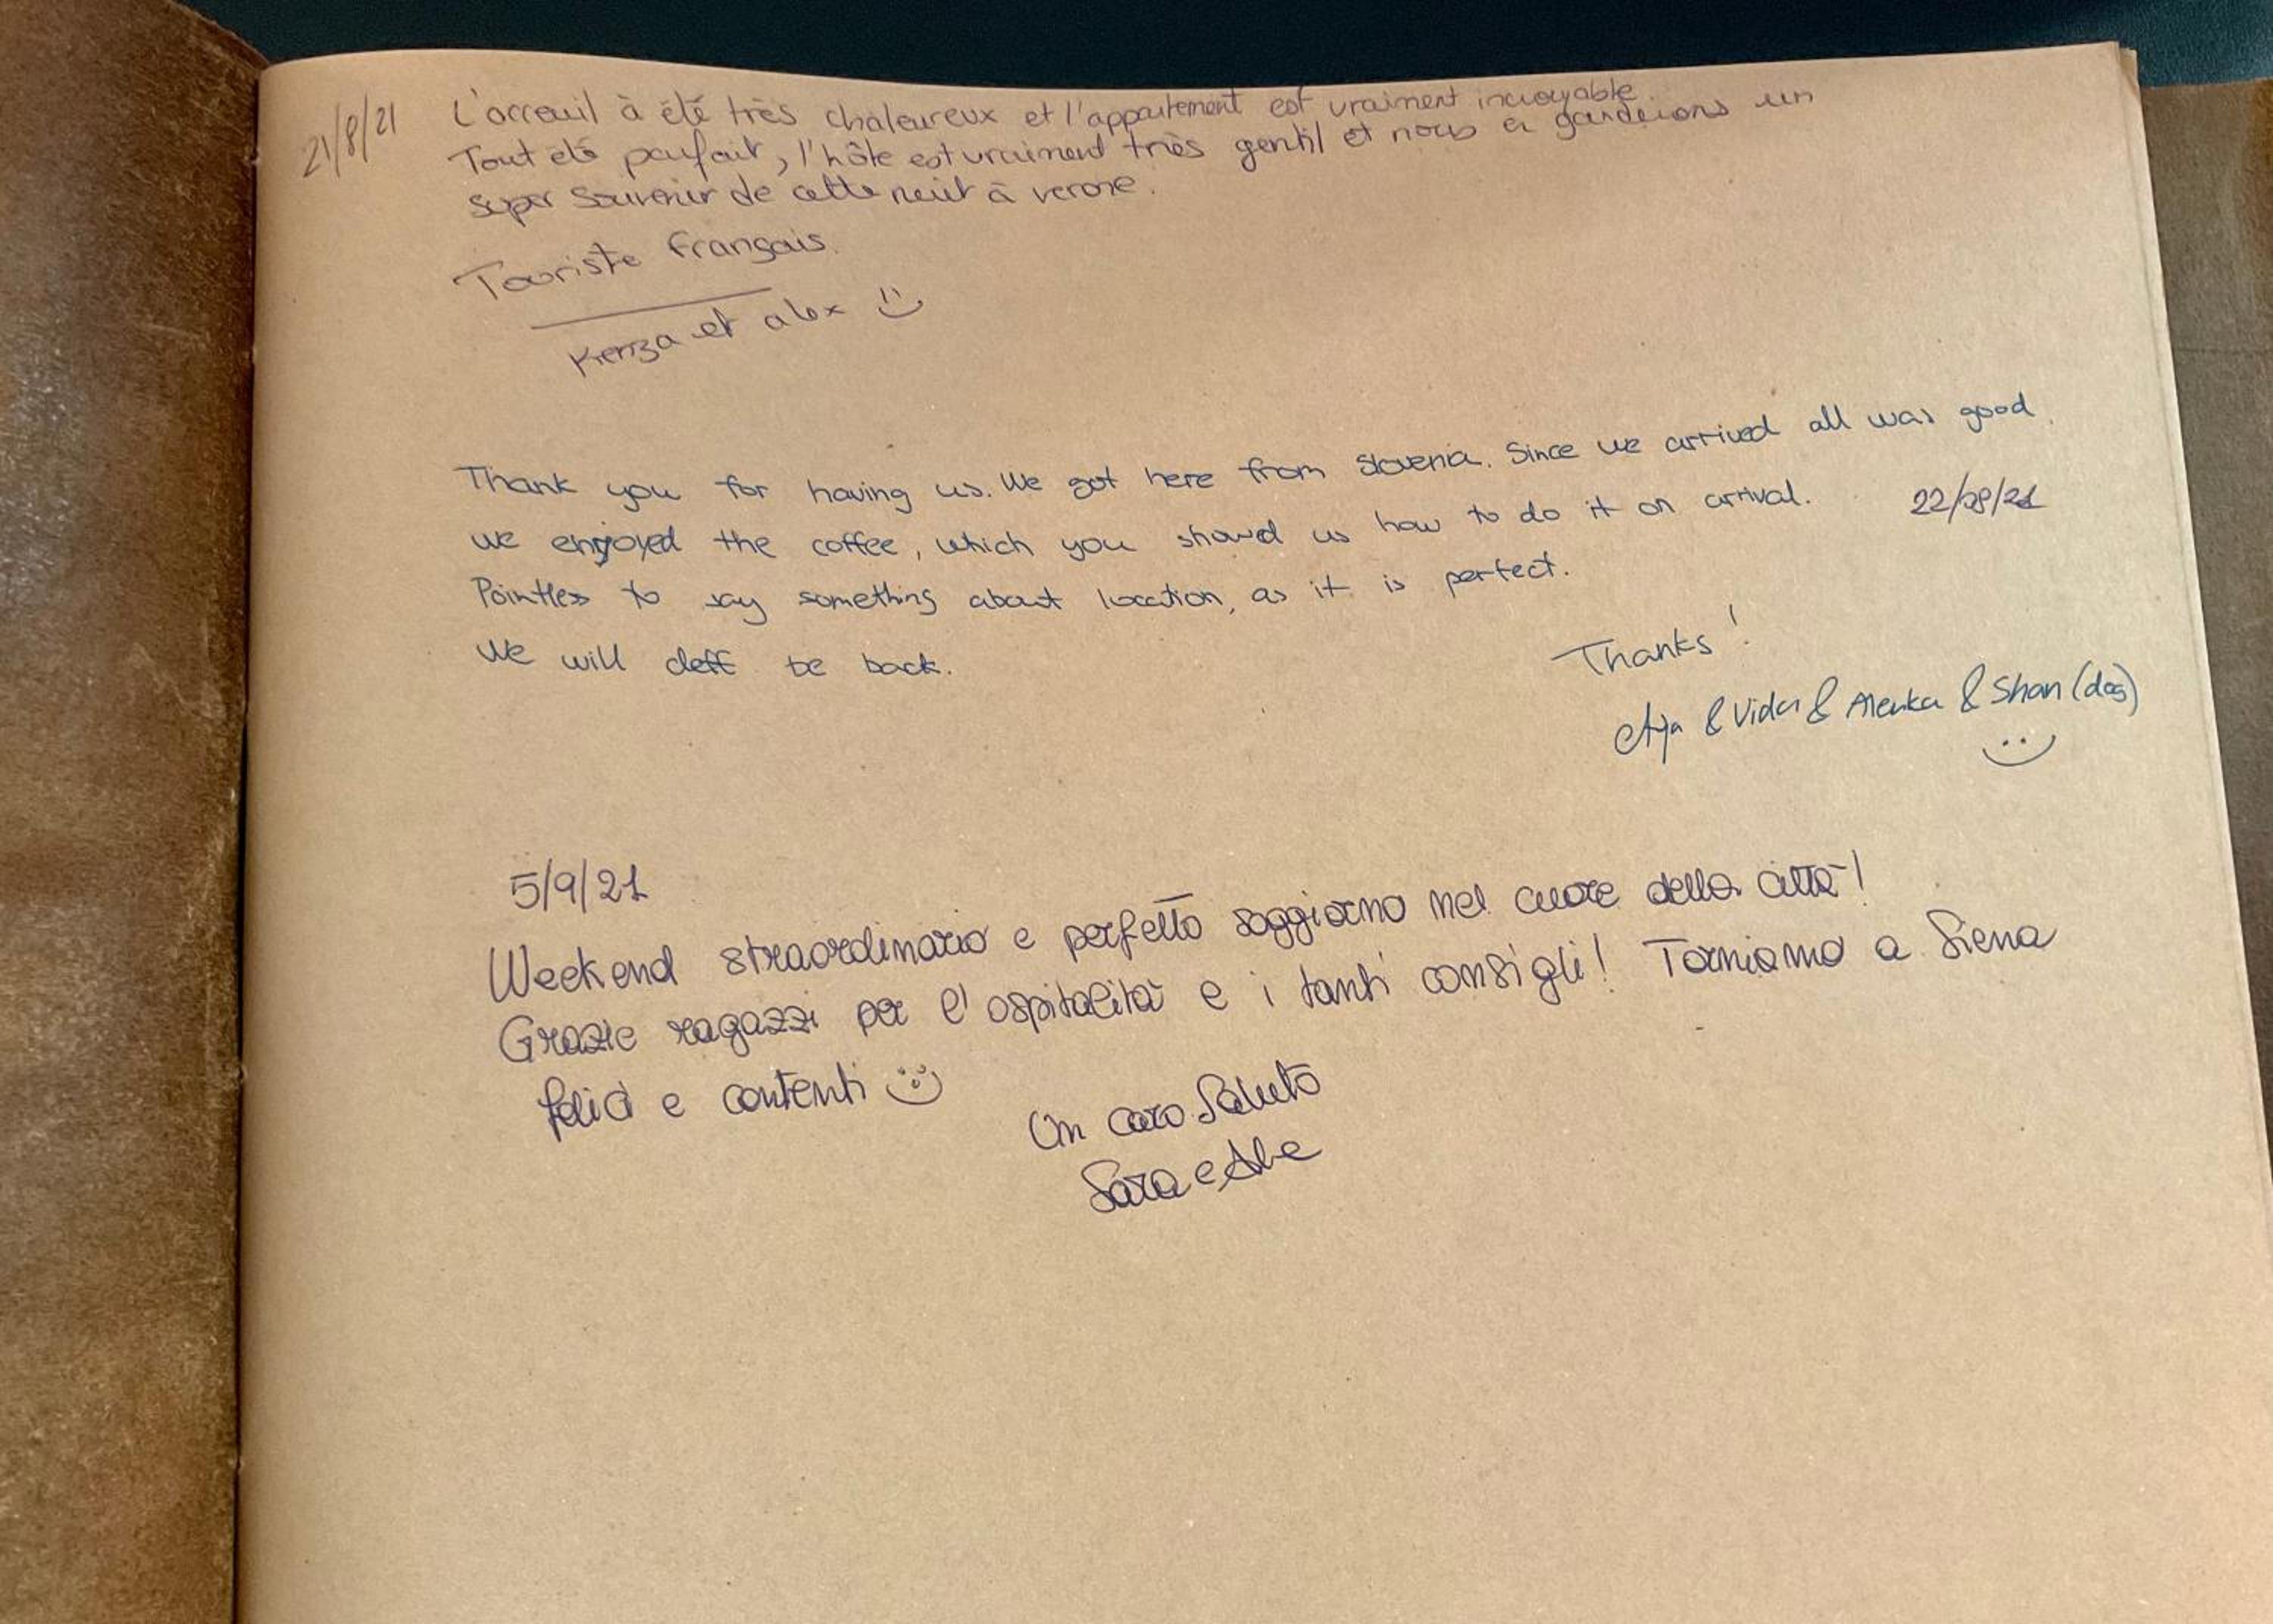 21/8/21
L'acceuil à été très chaleureux et l'appartement est vraiment incroyable.
Tout été parfait, l'hôte est vraiment très gentil et nous en garderions un
super souvenir de cette nuit à verone.
Touriste français.
Kenza et alex
Thank you for having us. We got here from Slovenia. Since we arrived all was good.
we enjoyed the coffee, which you showed us how to do it on arrival.
22/08/21
Pointless to say something about location, as it is perfect.
We will deff be back.
Thanks!
Aja & Vida & Alenka & Shan (dog)
5/9/21
Weekend straordinario e perfetto soggiorno nel cuore della città!
Grazie ragazzi per l'ospitalità e i tanti consigli! Torniamo a Siena
felici e contenti
Un caro saluto
Sara e Ale